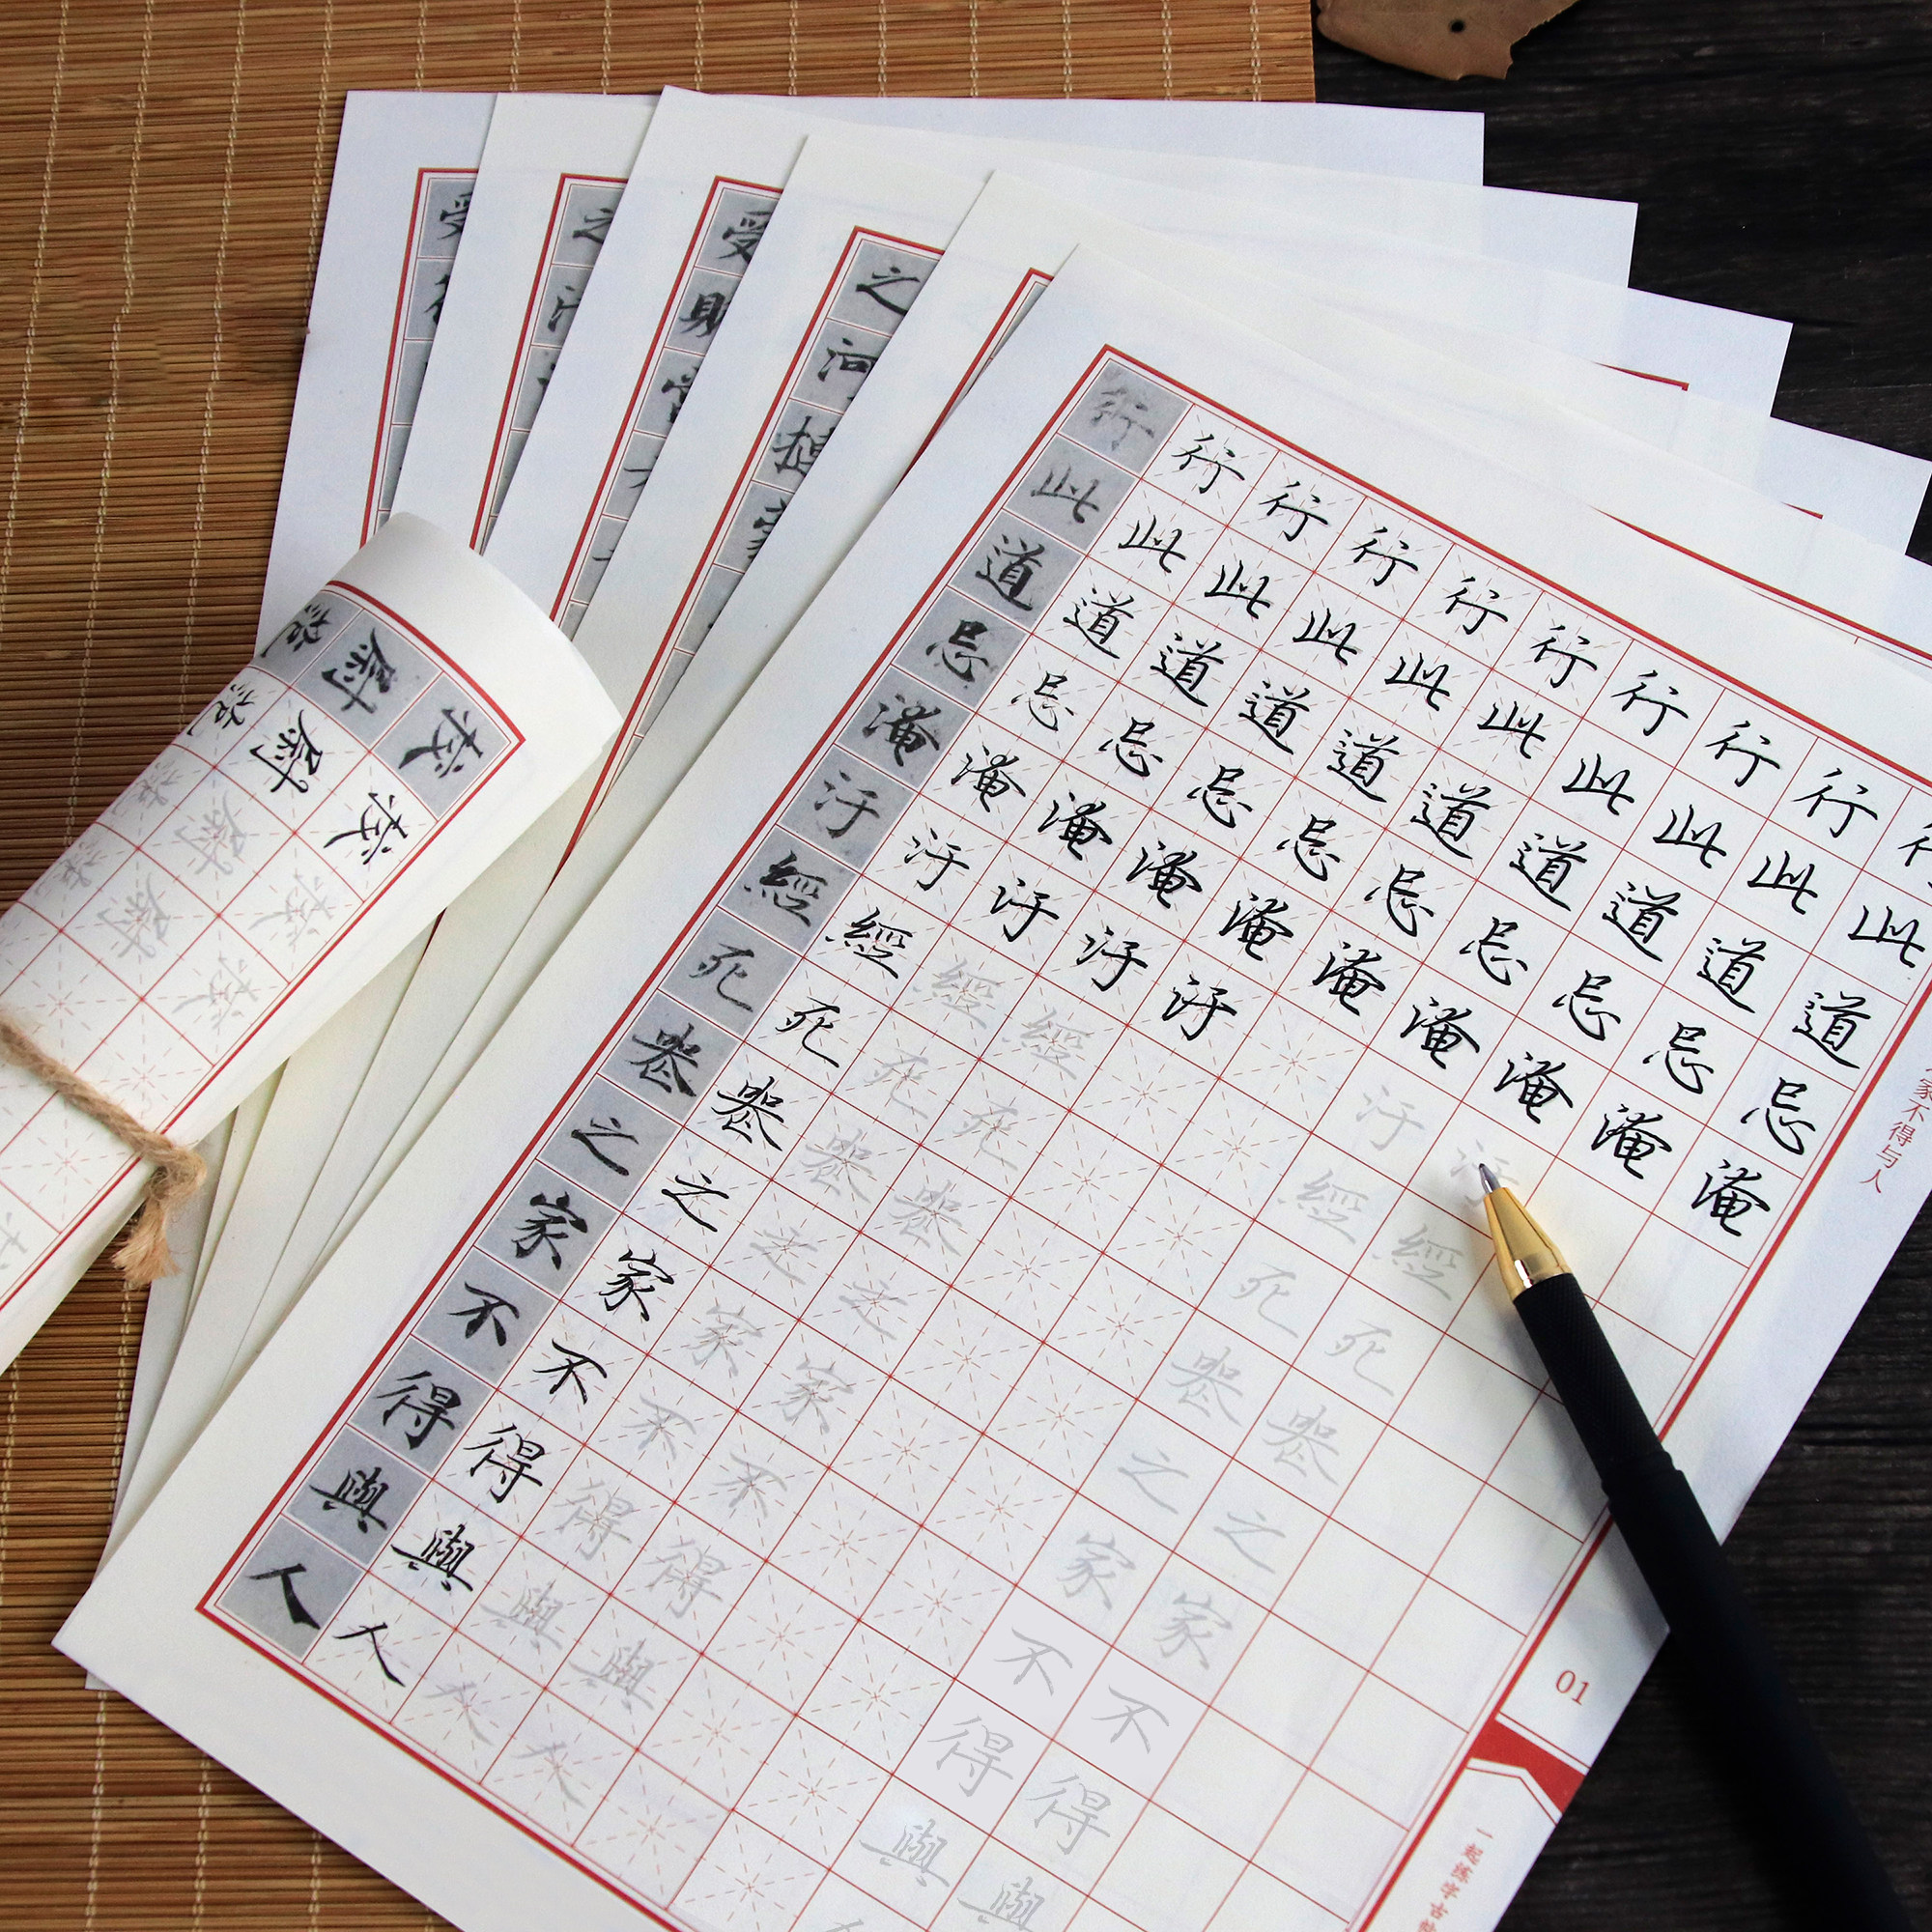 受
之
受
財
之
河
植
行 行 行 行 行 行 行 行 行
此 此 此 此 此 此 此 此 此 此
道 道 道 道 道 道 道 道 道 道
忌 忌 忌 忌 忌 忌 忌 忌 忌 忌
淹 淹 淹 淹 淹 淹 淹 淹 淹 淹
汙 汙 汙 汙 汙 汙 汙
經 經 經 經 經 經
死 死 死 死 死 死
喪 喪 喪 喪 喪 喪
之 之 之 之 之 之
家 家 家 家 家 家
不 不 不 不 不 不
得 得 得 得 得 得
與 與 與 與 與 與
人 人 人 人
家不得与人
01
一起练字古